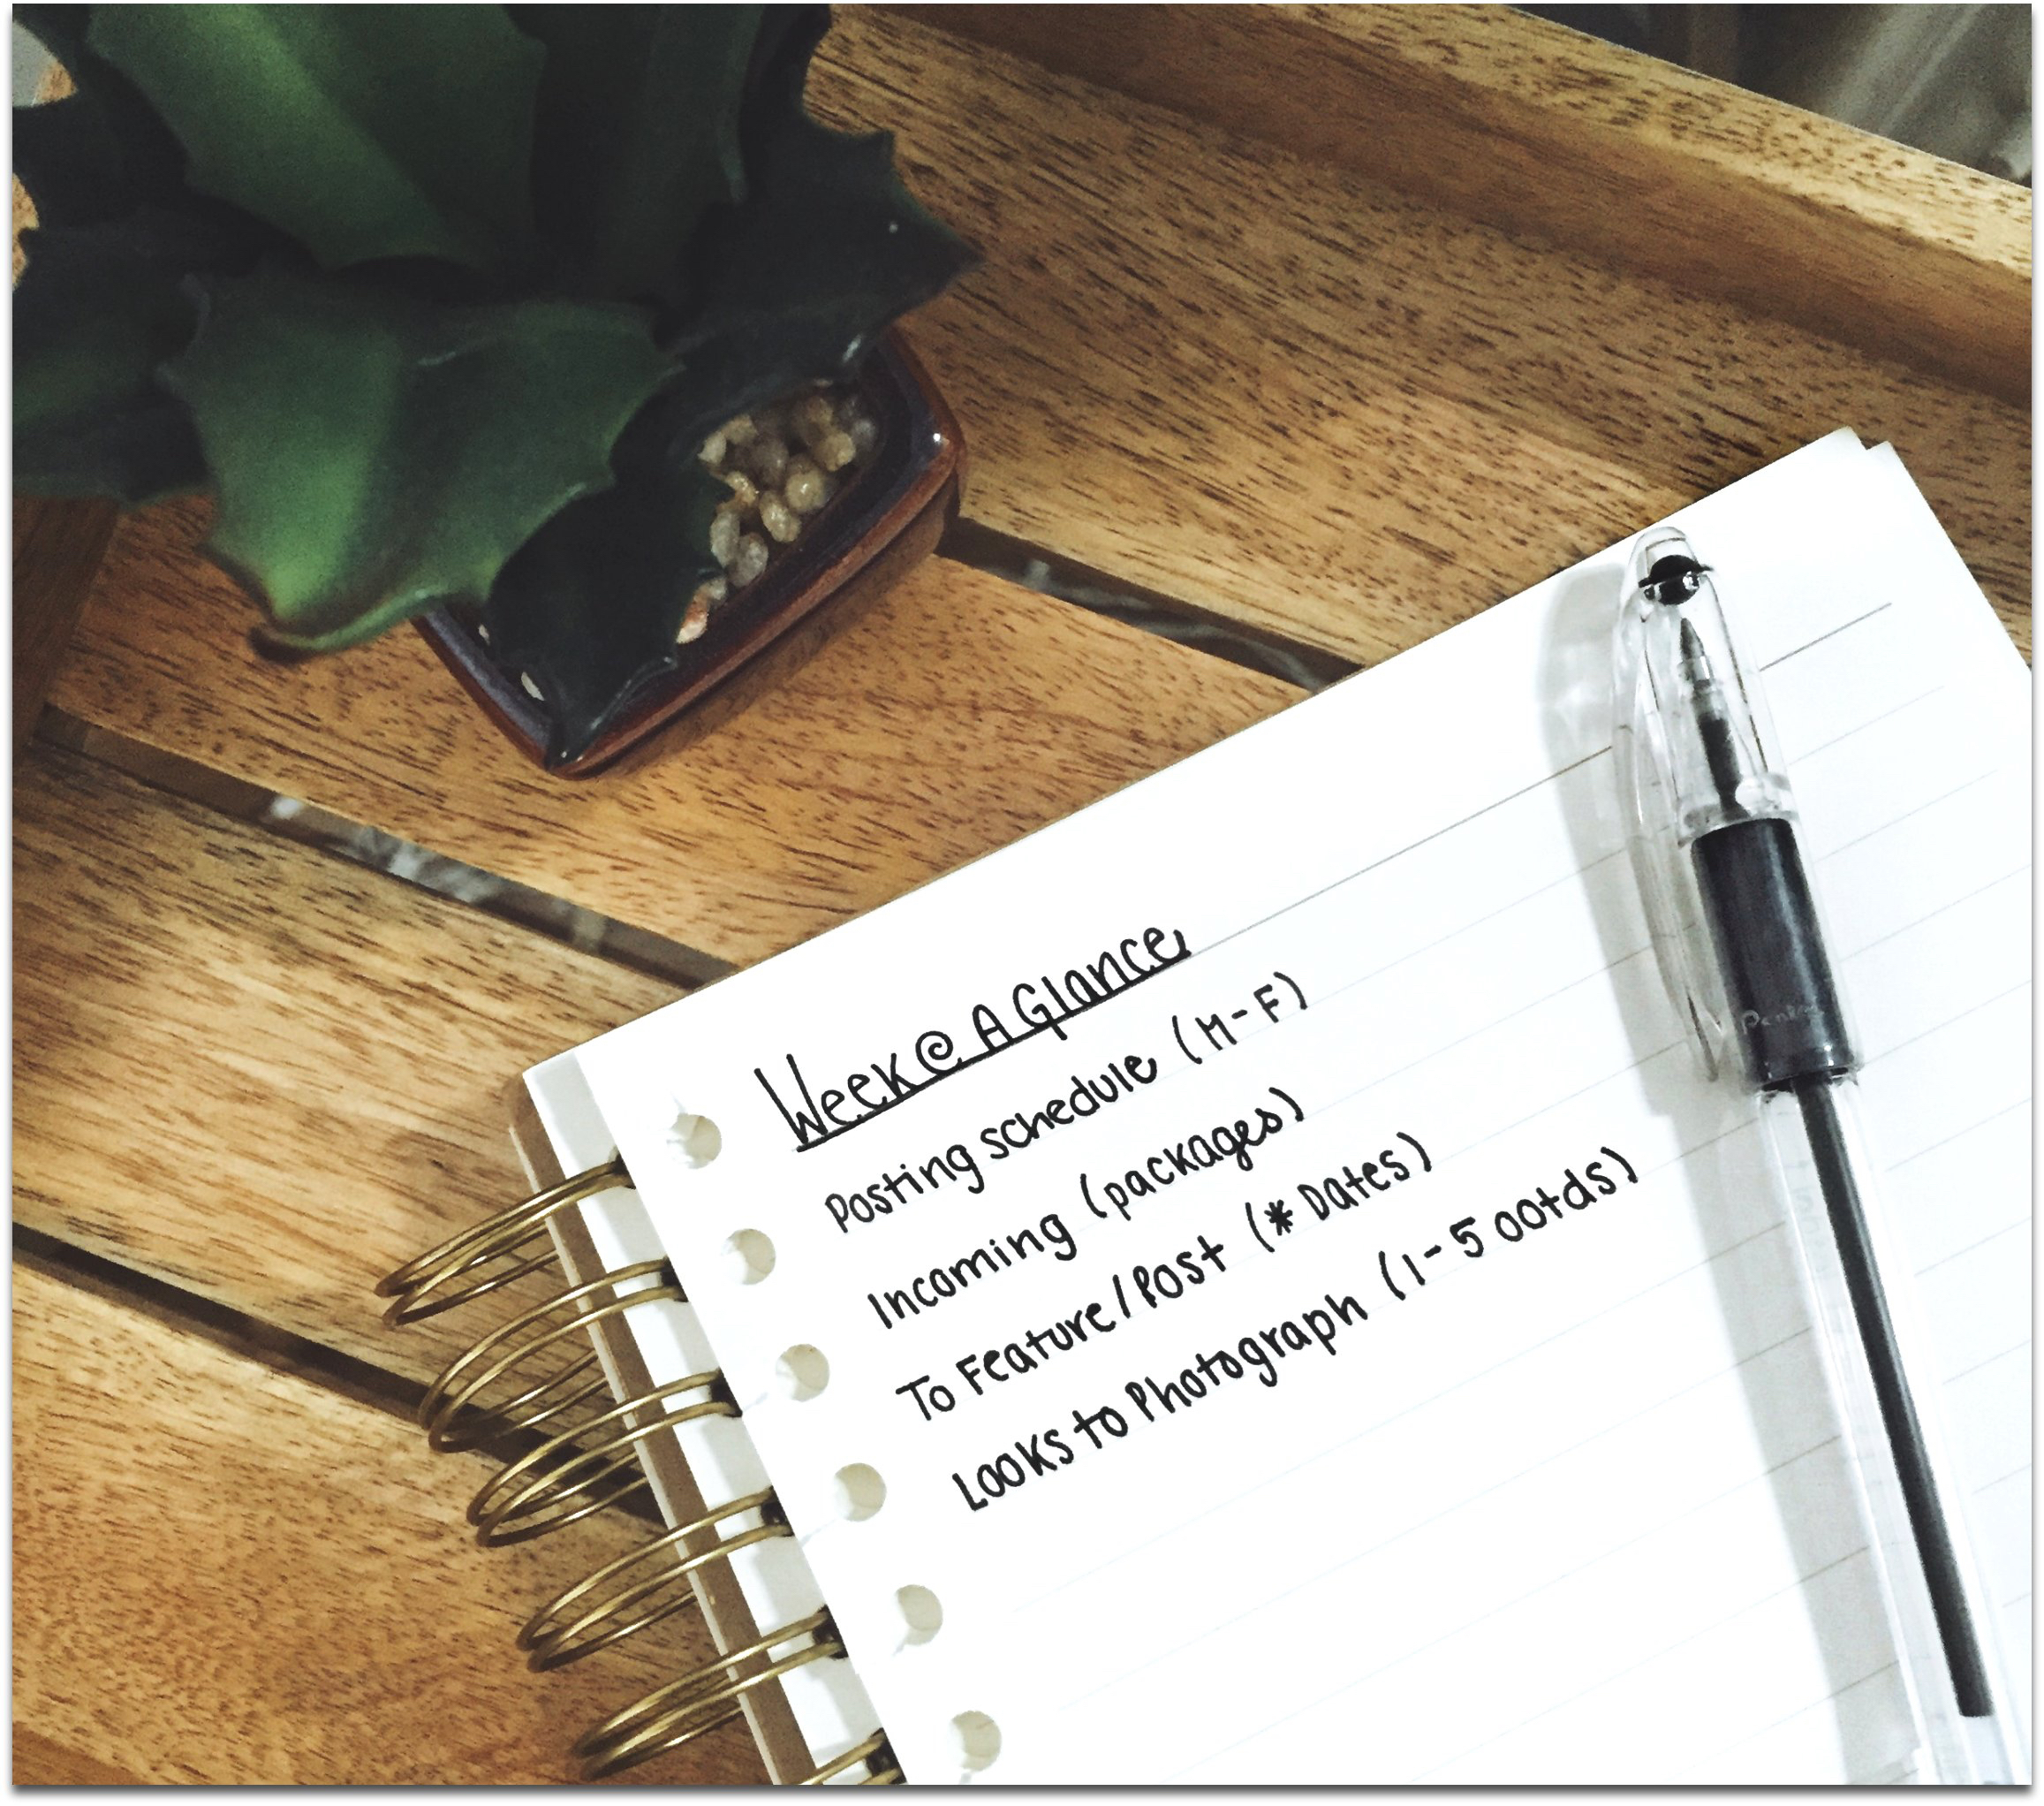 Week @ A Glance
Posting schedule (M-F)
Incoming (packages)
To Feature/Post (* Dates)
Looks to Photograph (1-5 ootds)